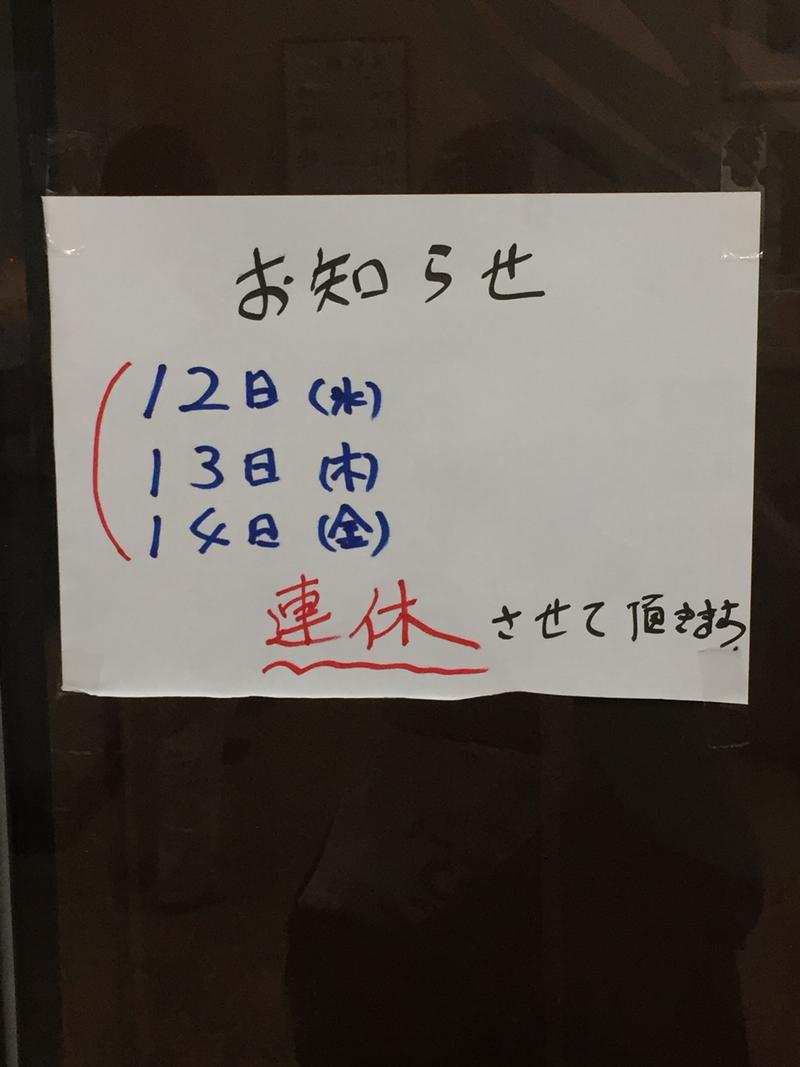 お知らせ
12日(水)
13日(木)
14日(金)
連休させて頂きます.